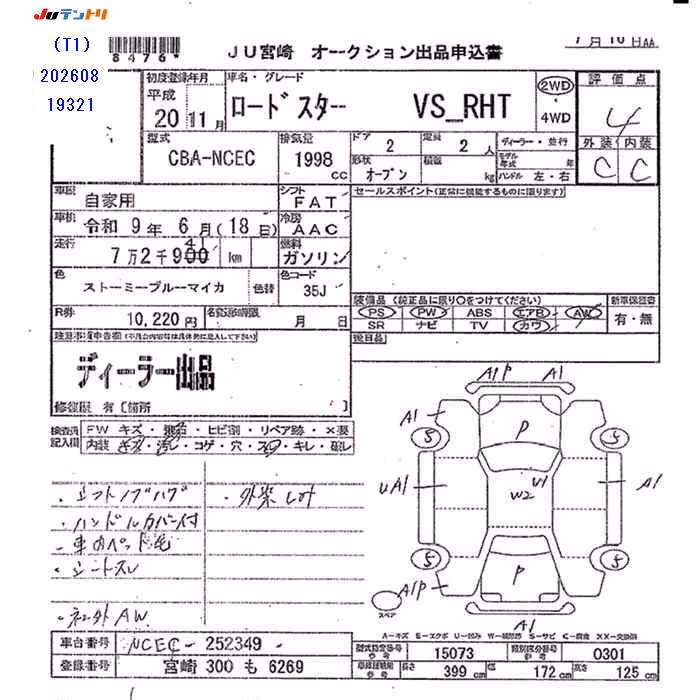 JUテントリ
(T1)
202608
19321
8476*
JU宮崎 オークション出品申込書
7月16日AA
初度登録年月
平成
20 11月
車名・グレード
ロードスター VS_RHT
2WD
4WD
評価点
4
外装 内装
C C
型式
CBA-NCEC
排気量
1998 cc
ドア
2
定員
2人
形状
オープン
積載
kg
ディーラー・並行
モデル年式 年
ハンドル 左・右
車歴
自家用
シフト
FAT
セールスポイント(正常に機能するものに限ります)
車検
令和 9年 6月(18日)
冷房
AAC
走行
7万2千900 41 km
燃料
ガソリン
色
ストーミーブルーマイカ
色替
色コード
35J
R券
10,220円
名変期限
月 日
装備品 (純正品に限り○をつけてください)
PS PW ABS エアB AW
SR ナビ TV カワ
新車保証書
有・無
後日品
ディーラー出品
修復歴 有 [箇所 ]
検査員記入欄
FW キズ・飛石・ヒビ割・リペア跡・×要
内装 キズ・汚レ・コゲ・穴・スレ・キレ・破レ
・シフトノブハゲ
・外装しみ
・ハンドルカバー付
・車内ペット毛
・シートスレ
・ネコ外AW
A1P A1
A1
P
5 5
UA1
U1
W2
A1
5 5
A1P
P
A1
スペア
A-キズ E-エクボ U-凹み W-補修跡 S-サビ C-腐食 XX-交換済
車台番号
NCEC-252349-
登録番号
宮崎 300 も 6269
型式指定番号 参考
15073
類別区分番号 参考
0301
車検証記載 参考
長さ 399 cm
幅 172 cm
高さ 125 cm